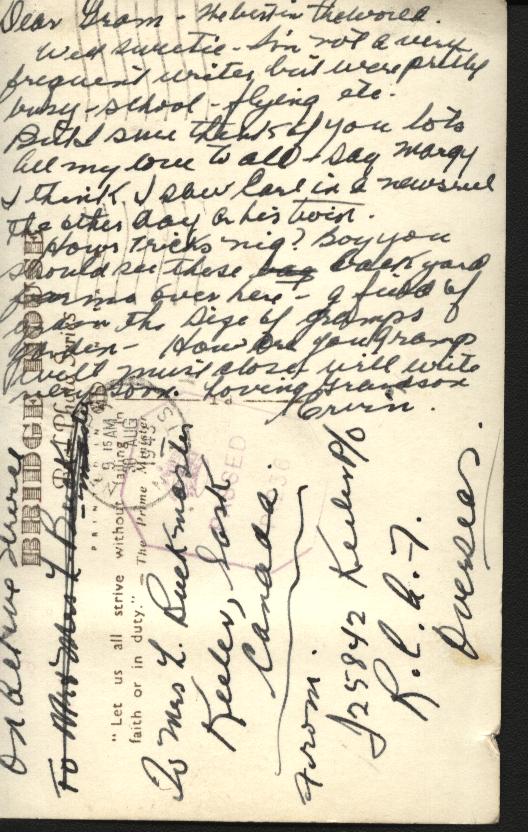 Dear Gram - The best in the world.
Well sweetie - I'm not a very
frequent writer, but were pretty
busy - school - flying etc.
But I sure think of you lots
all my love to all - say Margy
I think I saw Carl in a newsreel
the other day or his twin.
Hows tricks nig? Boy you
should see these back yard
farms over here - a field of
the size of Gramps
garden - How are you Gramps
Well must close will write
very soon. Loving Grandson
Ervin.
On Active Service
BRIDGE HOUSE
Real Photo Series
PRINTED IN
"Let us all strive without failing in
faith or in duty." — The Prime Minister
9 15 AM
AUG
1943
PASSED
To Mrs L. Buckmaster
Keeler, Sask.
Canada.
From.
J25842 Keeler P/O
R.C.A.F.
Overseas.